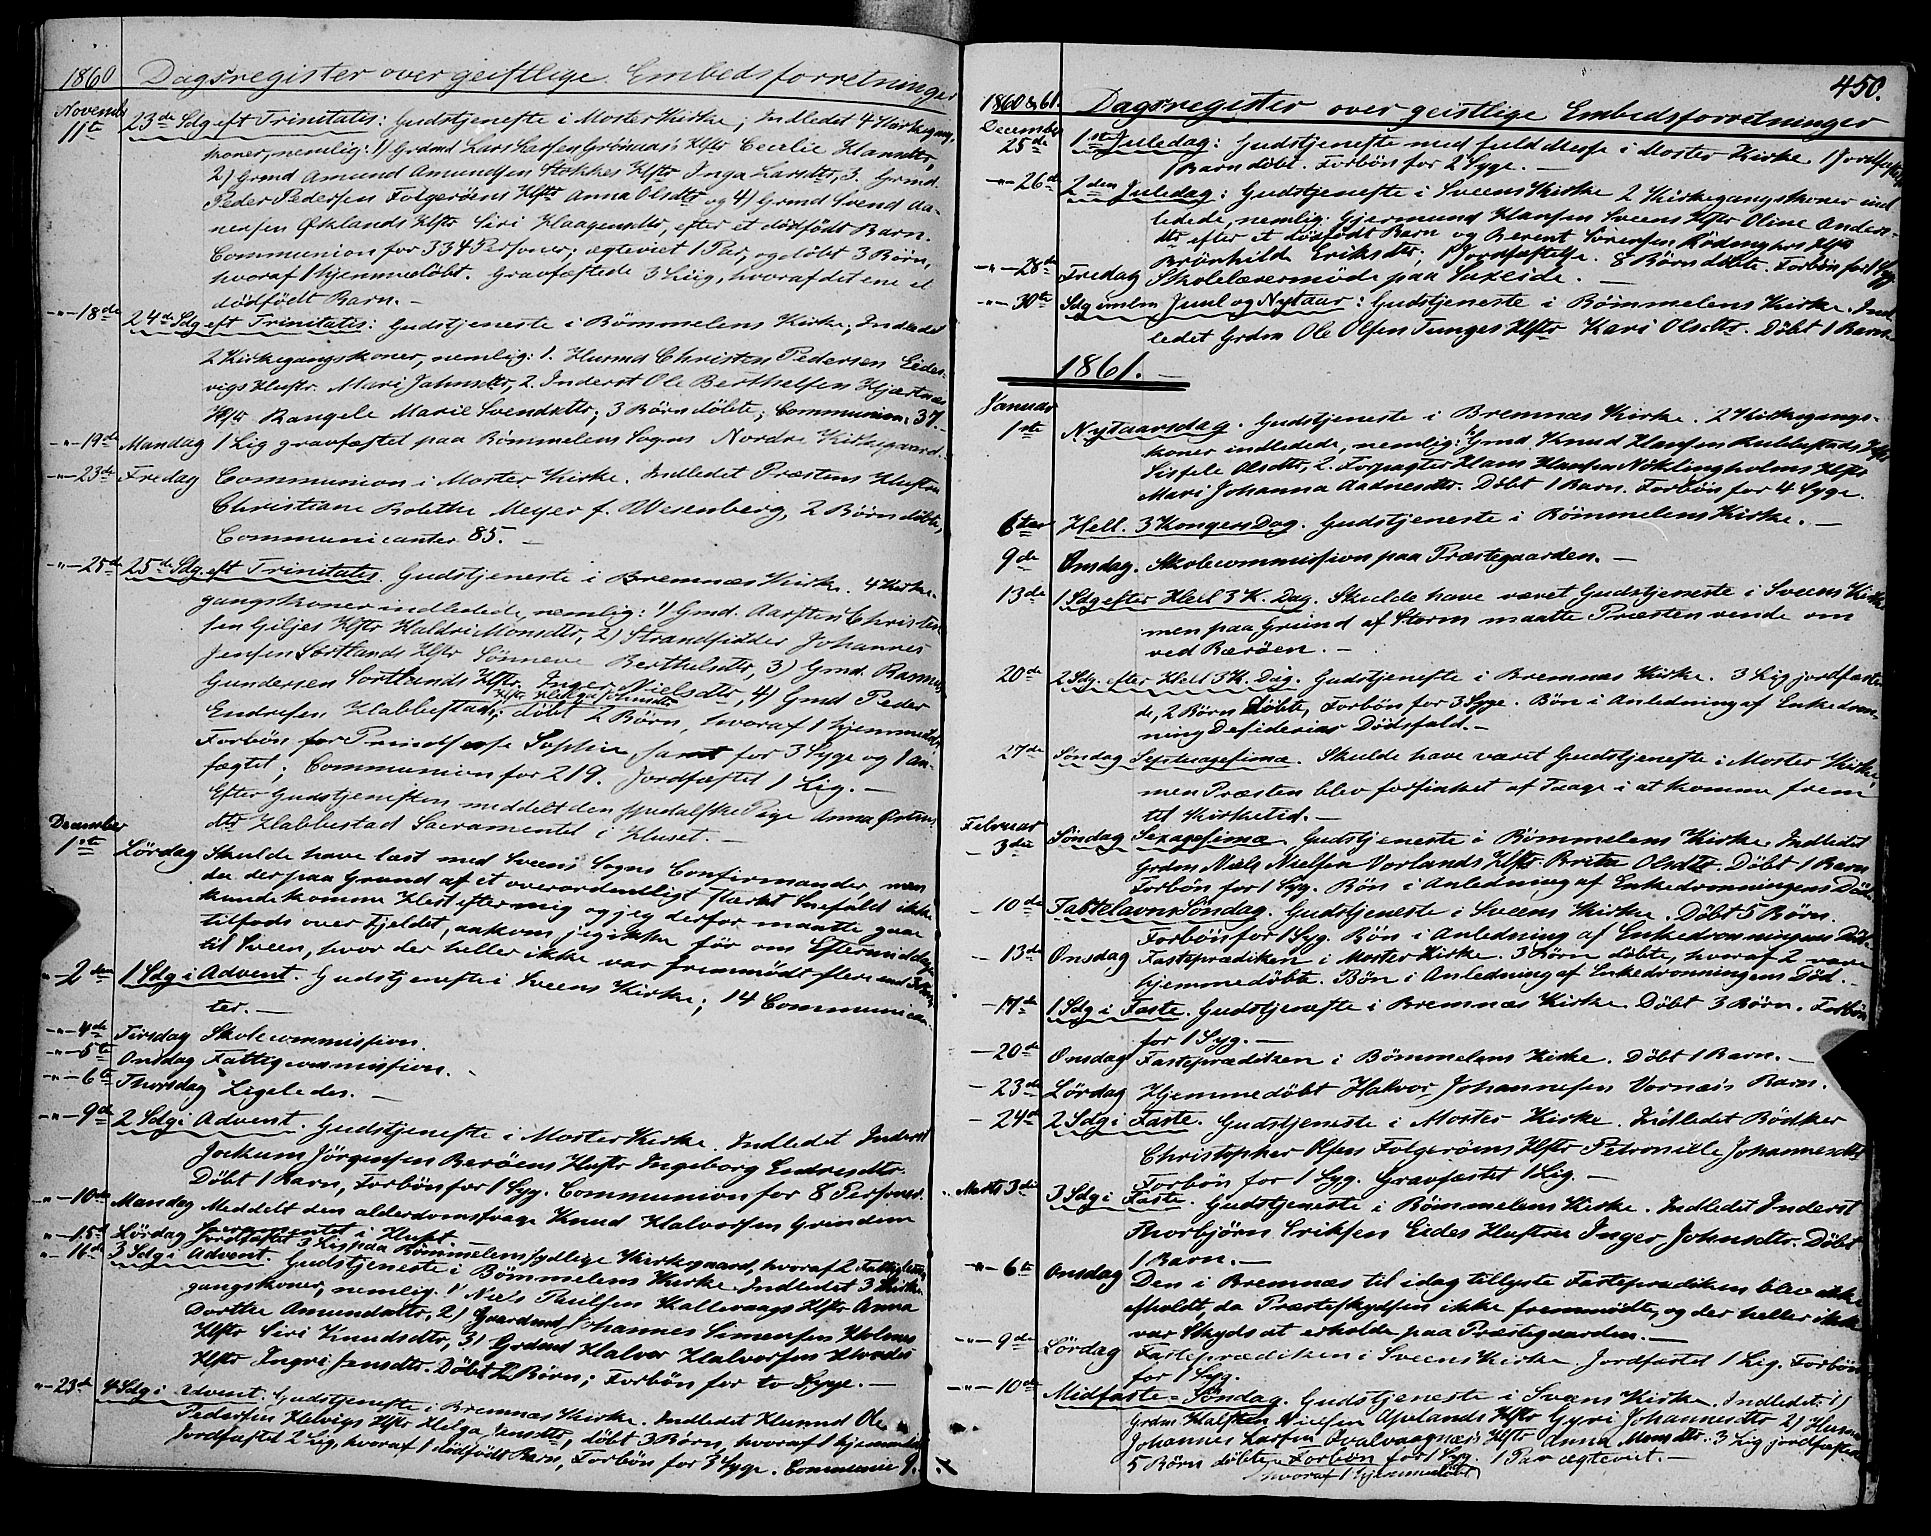 1860 Dagsregister over geistlige Embedsforretninger
November
11te 23de Sdg eft Trinitatis: Gudstjeneste i Moster Kirke; Indledet 4 Kirkegang
koner, nemlig: 1) Grdmd Lars Larsen Grönnaas Hstr Cecilie Hansdttr,
2) Grmd Amund Amundsen Stokkes Hstr Inga Larsdttr, 3. Grmd.
Peder Pedersen Folgeröens Hstr Anna Olsdttr og 4) Grmd Svend Aa-
nensen Øklands Hstr Siri Haagensdttr, efter et dödfödt Barn.
Communion for 334 Personer; ægteviet 1 Par, og döbt 3 Börn,
hvoraf 1 hjemmedöbt. Gravfæstede 3 Liig, hvoraf det ene et
dödfödt Barn. –
-"- 18de 24de Sdg eft Trinitatis: Gudstjeneste i Bömmelens Kirke; Indledet
2 Kirkegangskoner, nemlig: 1. Husmd Christen Pedersen Eides-
vigs Hustr. Mari Jahnsdttr, 2 Inderst Ole Berthelsen Hjartnæs
Hstr Rangele Marie Svendsdttr; 3 Börn döbte; Communion: 37.
-"- 19de Mandag 1 Lig gravfæstet paa Bömmelens Sogns Nordre Kirkegaard.
-"- 23de Fredag Communion i Moster Kirke. Indledet Præstens Hustru
Christiane Bolethe Meyer f. Wesenberg, 2 Börn döbte,
Communicanter 85. –
-"- 25de 25de Sdg eft Trinitatis. Gudstjeneste i Bremnæs Kirke. 4 Kirke-
gangskoner indledede, nemlig: 1) Gmd. Aarsten Christen
sen Giljes Hstr Haldri Monsdttr, 2) Strandsidder Johannes
Jensen Sortlands Hstr Sönneve Berthelsdttr, 3) Gmd. Rasmus
Gundersen Sortlands Hstr, Inger Nielsdttr, 4) Gmd Peder
Endresen Habbestads, Hstr Helga Johnsdttr döbt 2 Börn, hvoraf 1 hjemmedöbt
Forbön for Prindsesse Sophie samt for 3 Syge og 1 an-
fægtet; Communion for 219. Jordfæstet 1 Lig. –
Efter Gudstjenesten meddelt den spedalske Pige Anna
dttr Habbestad Sacramentet i Huset. –
December
1ste Lördag Skulde have læst med Sveens Sogns Confirmander, men
da der paa Grund af et overordentligt stærkt Snefald ikke
kunde komme Hest efter mig og jeg derfor maatte gaae
tilfods over Fjeldet, ankom jeg ikke för om Eftermiddagen
til Sveen, hvor der heller ikke var fremmödt flere end
-"- 2den 1 Sdg i Advent. Gudstjeneste i Sveens Kirke; 14 Communican-
ter. –
-"- 4de Tirsdag Skolecommission.
-"- 5te Onsdag Fattigcommission.
-"- 6te Thorsdag Ligeledes. –
-"- 9de 2 Sdg i Advent. Gudstjeneste i Moster Kirke. Indledet Inderst
Jochum Jörgensen Beröens Hustr Ingeborg Endresdttr.
Döbt 1 Barn, Forbön for 1 Syg. Communion for 8 Personer.
-"- 10de Mandag Meddelt den alderdomssvage Knud Halvorsen Grindem
Sacramentet i Huset.
-"- 15d Lördag Jordfæstet 3 Lig paa Bömmelens sydlige Kirkegaard, hvoraf 2
-"- 16de 3 Sdg i Advent. Gudstjeneste i Bömmelens Kirke Indledet 3 Kirke-
gangskoner, nemlig. 1 Niels Paulsen Kallevaags Hstr Anna
Dorthe Amundsdttr, 2) Gaardmd Johannes Simensen Holmes
Hstr Siri Knudsdttr, 3) Grdmd Halvor Halvorsen
Hstr Ingri Jensdttr. Döbt 2 Börn; Forbön for to Syge. –
-"- 23de 4 Sdg i Advent. Gudstjeneste i Bremnæs Kirke. Indledet Husmd Ole
Pedersen Helvigs Hstr Helga Jensdttr, döbt 3 Börn, hvoraf 1 hjemmedöbt
Jordfæstet 2 Lig, hvoraf 1 dödfödt Barn, Forbön for 3 Syge. Communion 9.
450.
1860 & 61. Dagsregister over geistlige Embedsforretninger
December
25de 1ste Juledag: Gudstjeneste med fuld Messe i Moster Kirke 1 Jordfæstelse
1 Barn döbt. Forbön for 2 Syge. –
-"- 26de 2den Juledag: Gudstjeneste i Sveens Kirke 2 Kirkegangskoner ind
ledede, nemlig. Gjermund Hansen Sveens Hstr Oline Anders-
dttr efter et dödfödt Barn og Berent Sörensen Hstr
Brönhilde Eriksdttr; 1 Jordfæstelse. 8 Börn döbte. Forbön for 1 Syg
-"- 28de Fredag Skolelærermöde paa Saxeide. –
-"- 30te Sdg imlm Juul og Nytaar: Gudstjeneste i Bömmelens Kirke. Ind-
ledet Grdm Ole Olsen Tunges Hstr Kari Olsdttr. Döbt 1 Barn.
1861. –
Januar
1ste Nytaarsdag. Gudstjeneste i Bremnæs Kirke. 2 Kirkegangs-
koner indledede, nemlig: Gmd. Knud Hansen Rubbestads Hstr
Sissele Olsdttr, 2. Forpagter Hans Hansen Nöklingholms Hstr
Mari Johanna Aadnesdttr. Döbt 1 Barn. Forbön for 4 Syge.
6te Hell. 3 Kongers Dag. Gudstjeneste i Bömmelens Kirke. –
9de Onsdag. Skolecommission paa Præstegaarden. –
13de 1 Sdg efter Hell 3 K. Dag. Skulde have været Gudstjeneste i Sveens Kirke
men paa Grund af Storm maatte Præsten vende om
ved Bæröen. –
20de 2 Sdg. efter Hell 3 K. Dag. Gudstjeneste i Bremnæs Kirke. 3 Lig jordfæste-
de, 2 Börn döbte, Forbön for 3 Syge. Bön i Anledning af Enkedron-
ning Desiderias Dödsfald. –
27de Söndag Septuagesima. Skulde have været Gudstjeneste i Moster Kirke,
men Præsten blev forsinket af Taage i at komme frem
til Kirketid. –
Februar
- 3die Söndag Sexagesima Gudstjeneste i Bömmelens Kirke. Indledet
Grdm Niels Nielsen Vorlands Hstr Brita Olsdttr. Döbt 1 Barn
Forbön for 1 Syg. Bön i Anledning af Enkedronningens Död.
- 10de Fastelavns Söndag. Gudstjeneste i Sveens Kirke. Döbt 5 Börn.
Forbön for 1 Syg. Bön i Anledning af Enkedronningens Död.
- 13de Onsdag Fasteprædiken i Moster Kirke. 3 Börn döbte, hvoraf 2 vare
hjemmedöbte. Bön i Anledning af Enkedronningens Död. –
- 17de 1 Sdg i Faste. Gudstjeneste i Bremnæs Kirke. Döbt 3 Börn. Forbön
for 1 Syg. –
- 20de Onsdag Fasteprædiken i Bömmelens Kirke. Döbt 1 Barn. –
- 23de Lördag Hjemmedöbt Halvor Johannesen Vornæs Barn.
- 24de 2 Sdg i Faste. Gudstjeneste i Moster Kirke. Indledet Bödker
Christopher Olsen Folgeröens Hstr Petronille Johannesdttr
Forbön for 1 Syg. Gravfæstet 1 Lig. –
Marts 3de 3 Sdg i Faste. Gudstjeneste i Bömmelens Kirke. Indledet Inderst
Thorbjörn Eriksen Eides Hustru Inger Johnsdttr. Döbt
1 Barn. –
-"- 6te Onsdag Den i Bremnæs til idag tillyste Fasteprædiken blev ikke
afholdt, da Præsteskydsen ikke fremmödte, og der heller ikke
var Skyds at erholde paa Præstegaarden. –
-"- 9de Lördag Fasteprædiken i Sveens Kirke. Jordfæstet 1 Lig. Forbön
for 1 Syg.
-"- 10de Midfaste-Söndag. Gudstjeneste i Sveens Kirke. Indledet: 1)
Grdm Halsten Nielsen Hstr Gyri Johannesdttr 2) Husmd
Johannes Larsen Hstr Anna Monsdttr. 3 Lig jordfæstede
5 Börn döbte, Forbön for 1 Syg. 1 Par ægteviet. –
hvoraf 1 hjemmedöbt